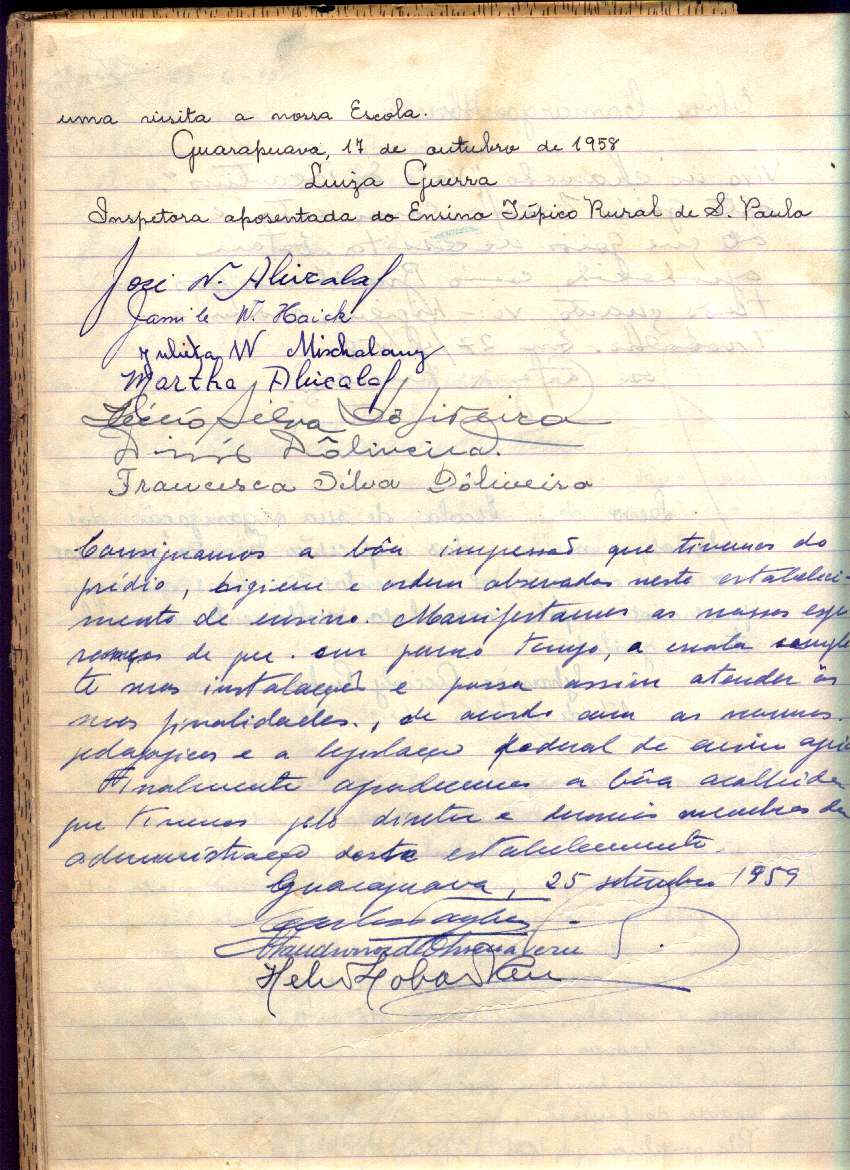 uma visita a nossa Escola.
Guarapuava, 17 de outubro de 1958
Luiza Guerra
Inspetora aposentada do Ensino Típico Rural de S. Paulo
José N. Abicalaf
Jamile N. Haick
Julieta W
Martha Abicalaf
Silva
Dôliveira.
Francisca Silva Dôliveira
Consignamos a bôa impressão que tivemos do
prédio, higiene e ordem observados neste estabeleci-
mento de ensino. Manifestamos as nossas espe
ranças de que em pouco tempo, a escola complete
te suas instalações e possa assim atender às
suas finalidades., de acordo com as normas
pedagogicas e a legislação federal de ensino
Finalmente agradecemos a bôa acolhida
que tivemos pelo diretor e demais membros da
administração deste estabelecimento.
Guarapuava, 25 setembro 1959